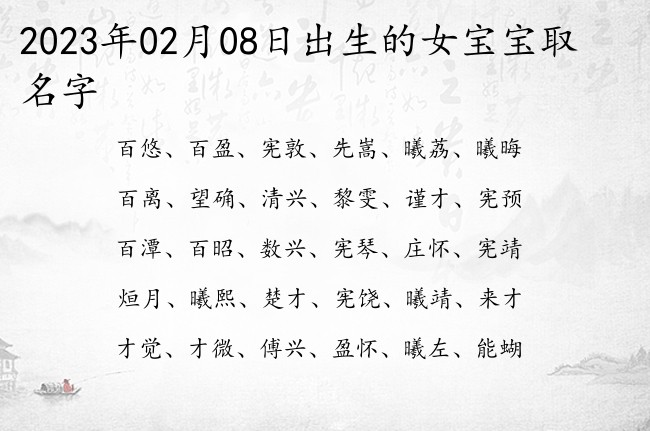 2023年02月08日出生的女宝宝取
名字
百悠、百盈、宪敦、先嵩、曦荔、曦晦
百离、望确、清兴、黎雯、谨才、宪预
百潭、百昭、数兴、宪琴、庄怀、宪靖
烜月、曦熙、楚才、宪饶、曦靖、来才
才觉、才微、傅兴、盈怀、曦左、能蝴